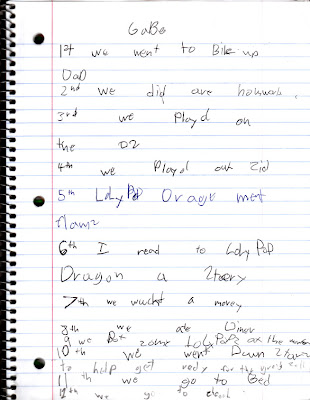 GaBe
1st we went to Bike up
DaD
2nd we did are homwork.
3rd we Playd on
the D2
4th we Playd out Zid
5th LolyPoP Dragin met
Namz
6th I read to LolyPoP
Dragon a Ztory
7th we wacht a movey
8th we ate Diner
9 we Put zome LolyPoPs on the
10th we went Down Ztarz
to help get redy for the
11th we go to Bed
12th we go to